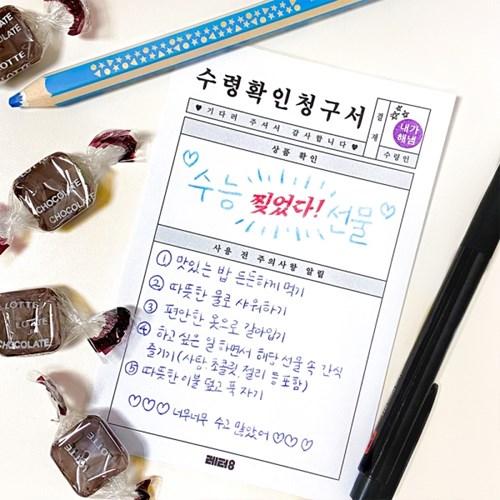 수령확인청구서
♥기다려 주셔서 감사합니다♥
결제
내가
해냄
수령인
상품 확인
♡수능 찢었다! 선물♡
사용 전 주의사항 알림
① 맛있는 밥 든든하게 먹기
② 따뜻한 물로 샤워하기
③ 편안한 옷으로 갈아입기
④ 하고 싶은 일 하면서 해당 선물 속 간식
즐기기(사탕, 초콜릿, 젤리 등 포함)
⑤ 따뜻한 이불 덮고 푹 자기
♡♡♡ 너무너무 수고 많았어 ♡♡♡
레터8
LOTTE
CHOCOLATE
CHOCOLATE
CHOCOLATE
LOTTE
LOTTE
CHOCOLATE
LOTTE
CHOCOLATE